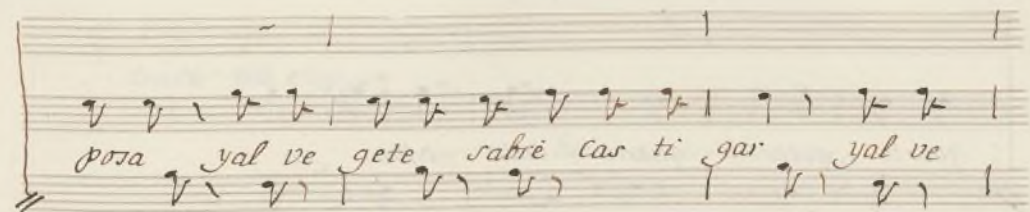 posa yal ve gete sabrè cas ti gar yal ve